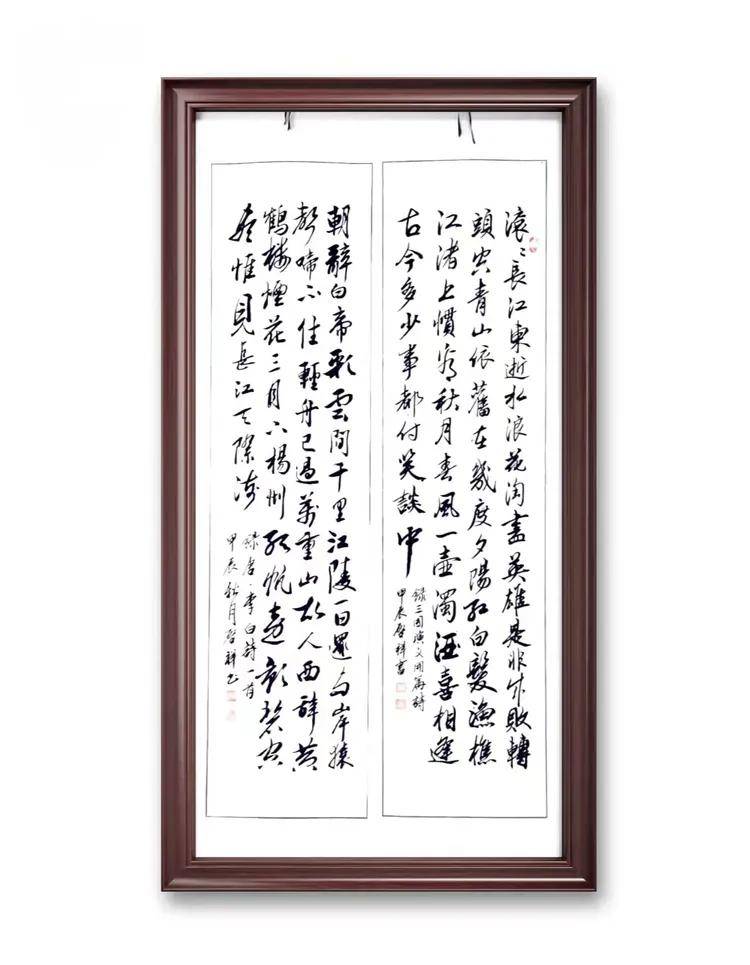 滚々長江東逝水浪花淘盡英雄是非成敗轉
頭空青山依舊在幾度夕陽紅白髮漁樵
江渚上慣看秋月春風一壺濁酒喜相逢
古今多少事都付笑談中
錄三国演义開篇詩
甲辰啓祥書
朝辭白帝彩雲間千里江陵一日還兩岸猿
聲啼不住輕舟已過萬重山故人西辭黃
鶴樓煙花三月下楊州孤帆遠影碧空
盡惟見長江天際流
錄唐李白詩一首
甲辰秋月啓祥書